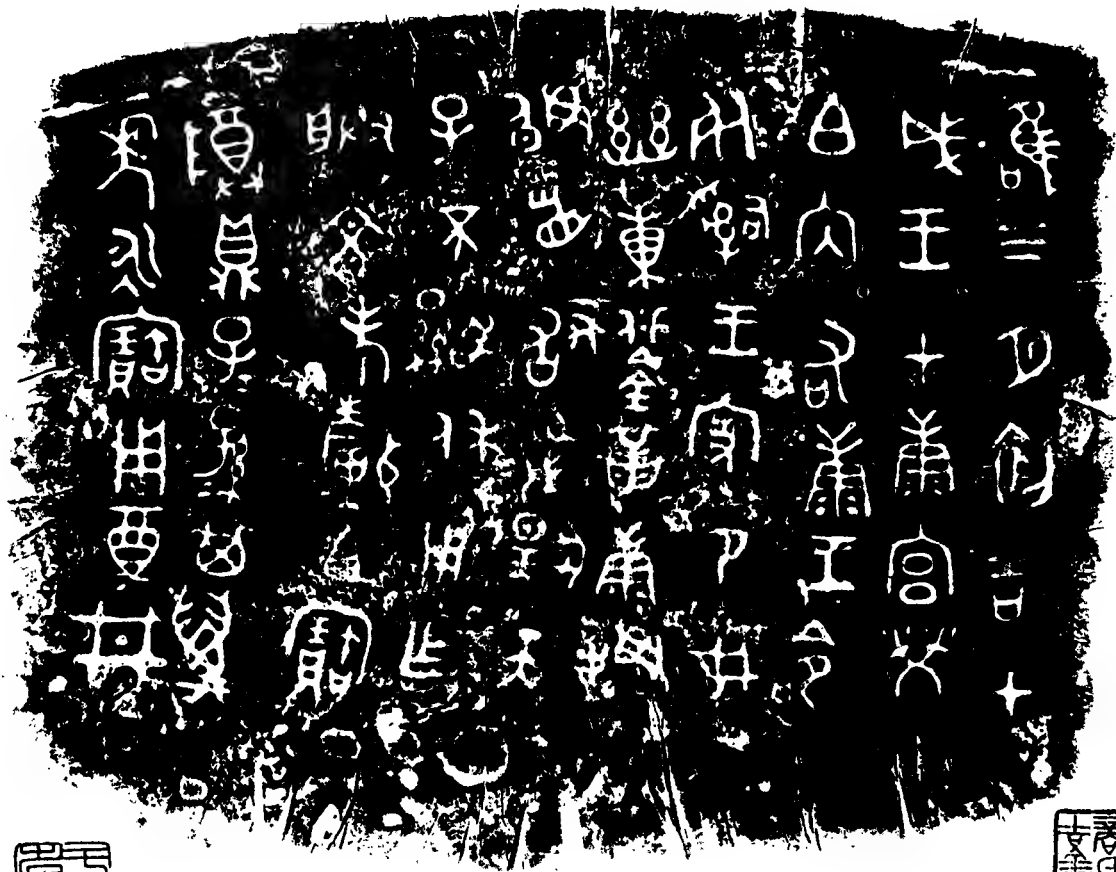 唯三月初吉甲
戌王才康宮𤇾
白內右康王命
死𤔲王家命女
幽黃鋚革康拜
𩒨首敢對揚天
子不顯休用乍
朕文考釐白寶
尊鼎子孫其萬
年永寶用奠井